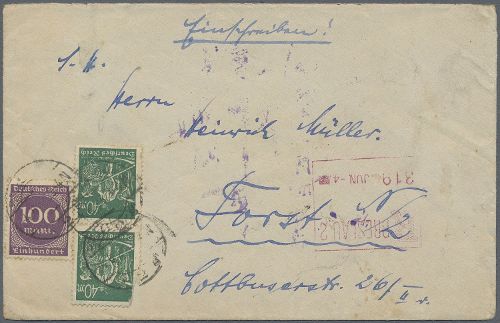 Einschreiben!
S. H.
Herrn
Heinrich Müller.
Forst. N/L
Cottbuserstr. 26/II r.
Deutsches Reich
100
Mark
Einhundert
Deutsches Reich
40
40
319 JUN -4
BRESLAU 2